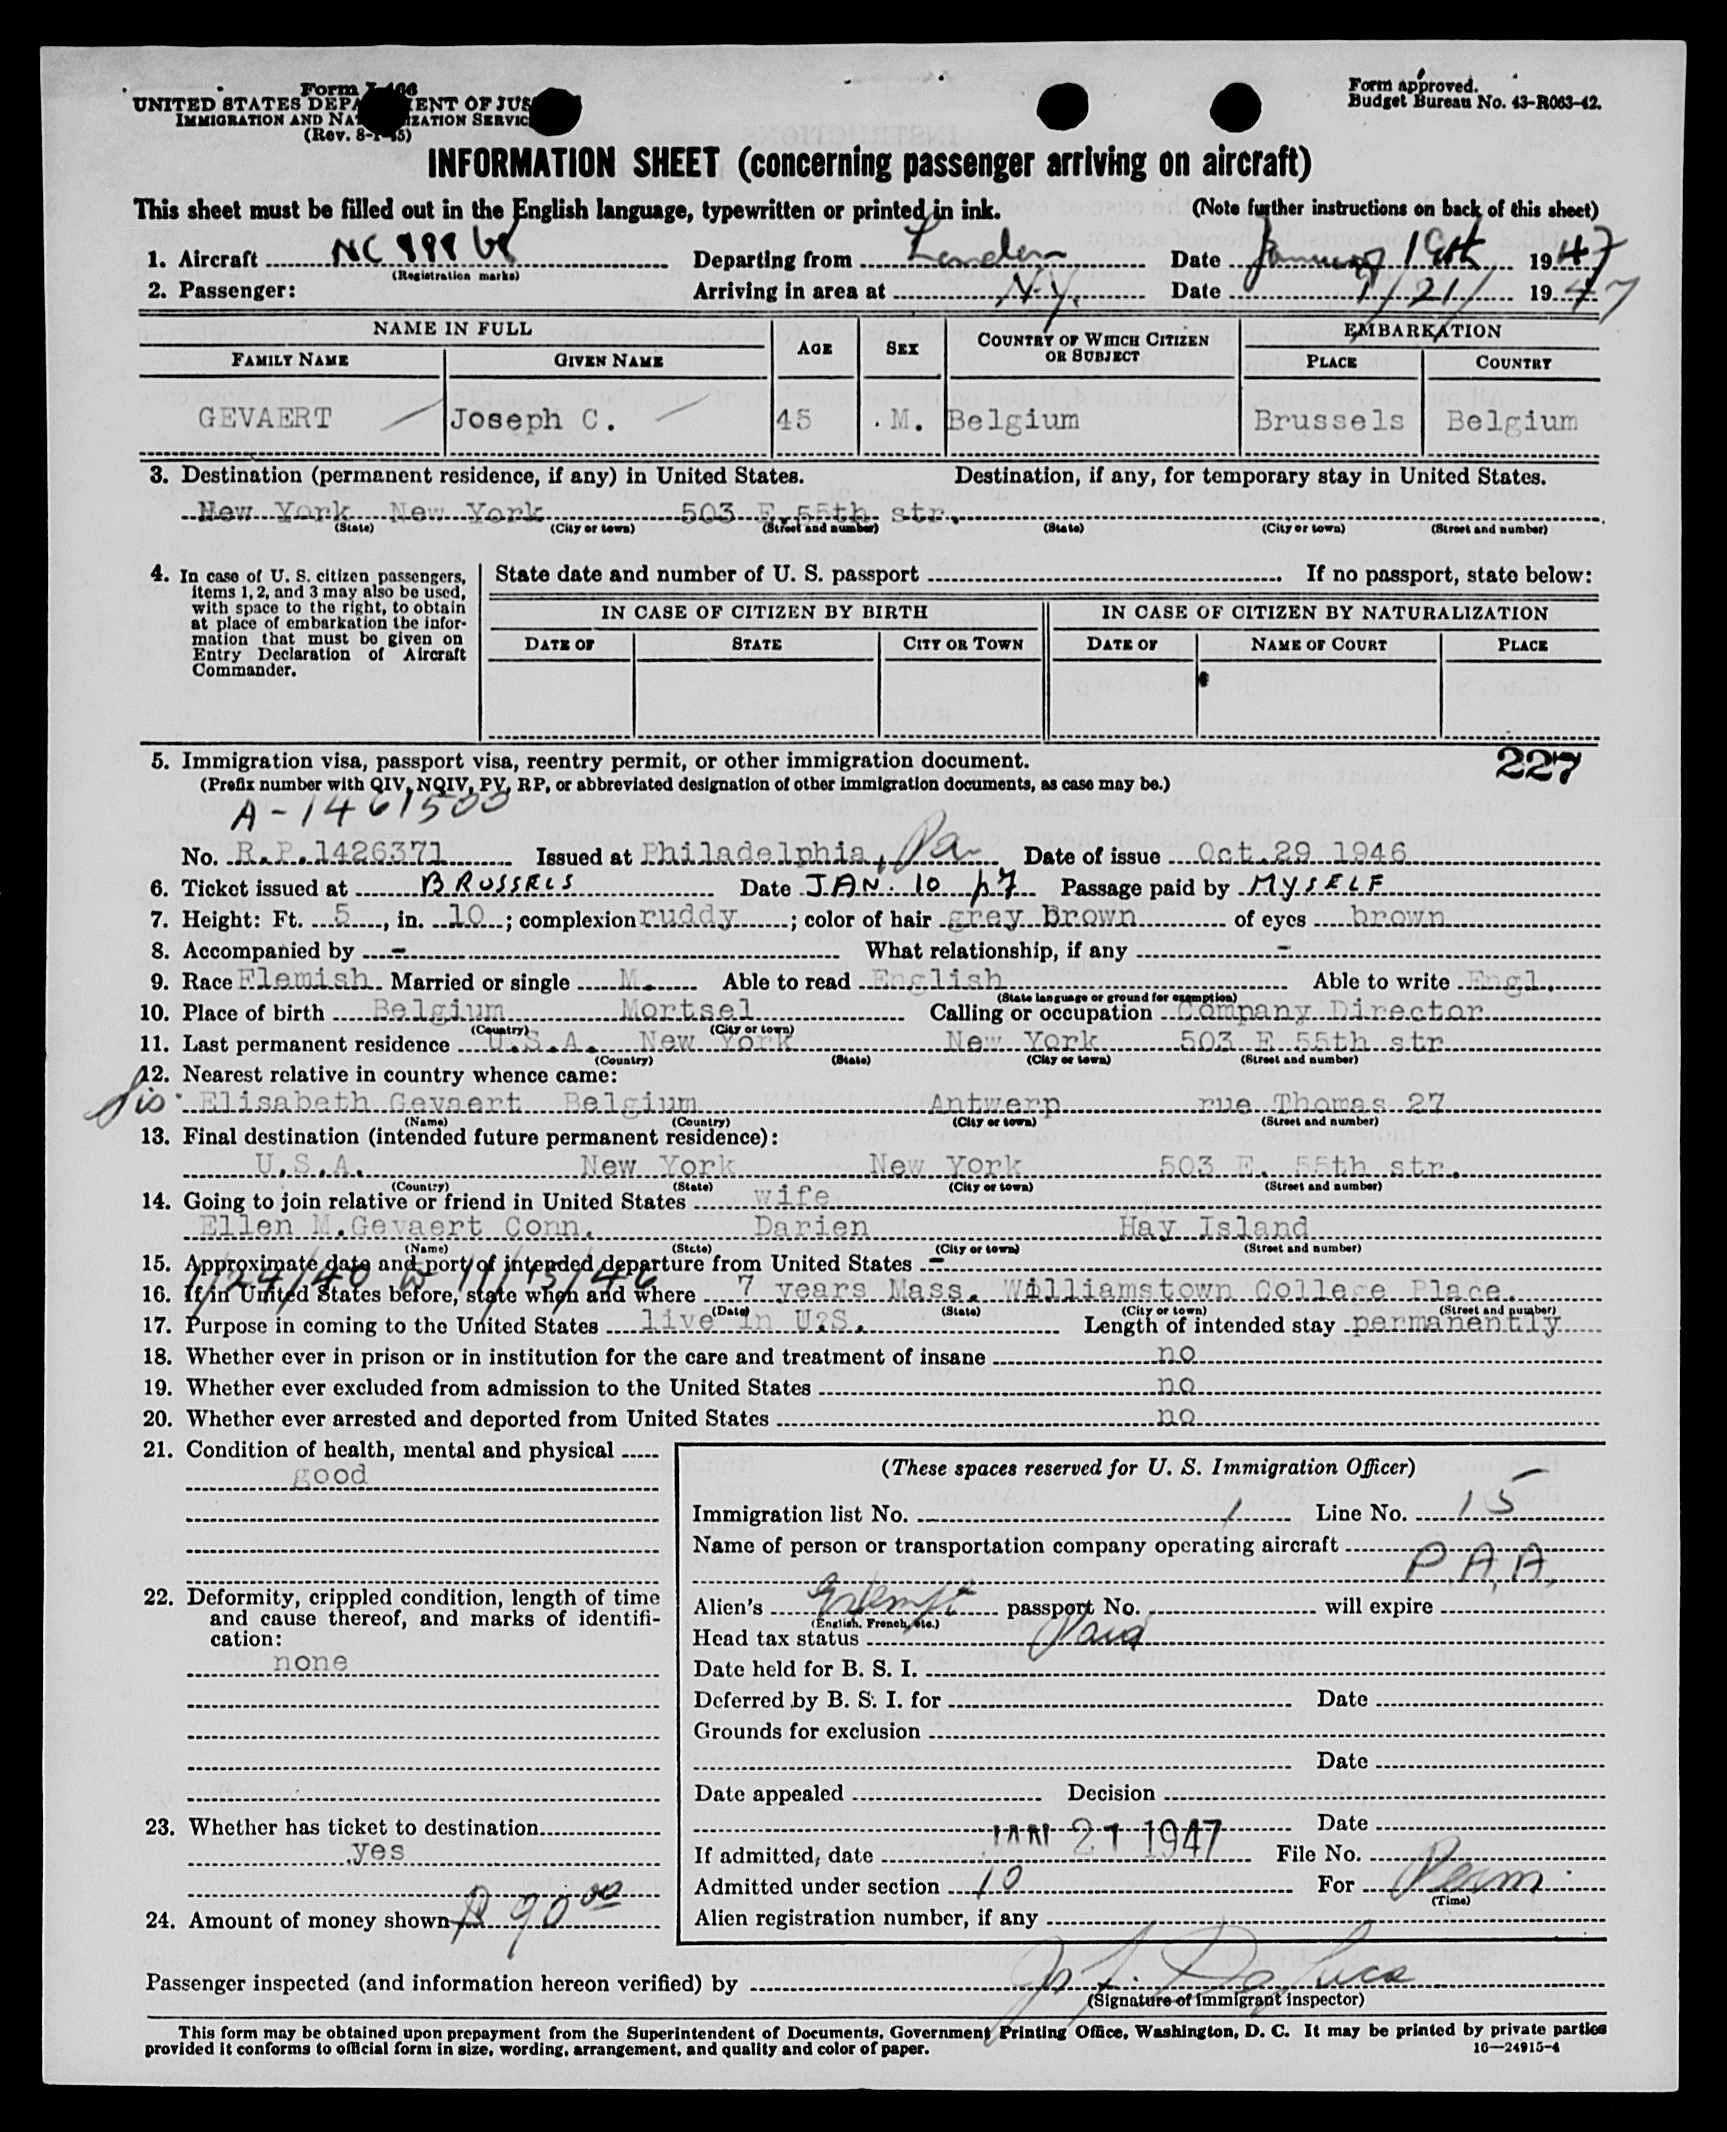 Form I-466
UNITED STATES DEPA ENT OF JUS
IMMIGRATION AND NAT IZATION SERVIC
(Rev. 8-1-45)
Form approved.
Budget Bureau No. 43-R063-42.
INFORMATION SHEET (concerning passenger arriving on aircraft)
This sheet must be filled out in the English language, typewritten or printed in ink. (Note further instructions on back of this sheet)
1. Aircraft NC Departing from London Date January 19th 1947
(Registration marks)
2. Passenger: Arriving in area at N.Y. Date 1/21/ 1947
NAME IN FULL AGE SEX COUNTRY OF WHICH CITIZEN OR SUBJECT EMBARKATION
FAMILY NAME GIVEN NAME PLACE COUNTRY
GEVAERT Joseph C. 45 . M. Belgium Brussels Belgium
3. Destination (permanent residence, if any) in United States. Destination, if any, for temporary stay in United States.
New York New York 503 E.55th str.
(State) (City or town) (Street and number) (State) (City or town) (Street and number)
4. In case of U. S. citizen passengers,
items 1, 2, and 3 may also be used,
with space to the right, to obtain
at place of embarkation the infor-
mation that must be given on
Entry Declaration of Aircraft
Commander.
State date and number of U. S. passport If no passport, state below:
IN CASE OF CITIZEN BY BIRTH IN CASE OF CITIZEN BY NATURALIZATION
DATE OF STATE CITY OR TOWN DATE OF NAME OF COURT PLACE
5. Immigration visa, passport visa, reentry permit, or other immigration document. 227
(Prefix number with QIV, NQIV, PV, RP, or abbreviated designation of other immigration documents, as case may be.)
A-1461500
No. R.P.1426371 Issued at Philadelphia, Pa Date of issue Oct.29 1946
6. Ticket issued at BRUSSELS Date JAN. 10 47 Passage paid by MYSELF
7. Height: Ft. 5, in. 10; complexion ruddy; color of hair grey Brown of eyes brown
8. Accompanied by - What relationship, if any -
9. Race Flemish. Married or single M. Able to read English Able to write Engl.
(State language or ground for exemption)
10. Place of birth Belgium Mortsel Calling or occupation Company Director
(Country) (City or town)
11. Last permanent residence U.S.A. New York New York 503 E 55th str
(Country) (State) (City or town) (Street and number)
12. Nearest relative in country whence came:
Sis. Elisabeth Gevaert Belgium Antwerp rue Thomas 27
(Name) (Country) (City or town) (Street and number)
13. Final destination (intended future permanent residence):
U.S.A. New York New York 503 E. 55th str.
(Country) (State) (City or town) (Street and number)
14. Going to join relative or friend in United States wife
Ellen M.Gevaert Conn. Darien Hay Island
(Name) (State) (City or town) (Street and number)
15. Approximate date and port of intended departure from United States -
1/24/40 to 11/15/46
16. If in United States before, state when and where 7 years Mass. Williamstown College Place.
(Date) (State) (City or town) (Street and number)
17. Purpose in coming to the United States live in U?S. Length of intended stay permanently
18. Whether ever in prison or in institution for the care and treatment of insane no
19. Whether ever excluded from admission to the United States no
20. Whether ever arrested and deported from United States no
21. Condition of health, mental and physical
good
22. Deformity, crippled condition, length of time
and cause thereof, and marks of identifi-
cation:
none
23. Whether has ticket to destination
yes
24. Amount of money shown $ 90 00
(These spaces reserved for U. S. Immigration Officer)
Immigration list No. 1 Line No. 15
Name of person or transportation company operating aircraft
P.A.A.
Alien's Exempt passport No. will expire
(English, French, etc.)
Head tax status Paid
Date held for B. S. I.
Deferred by B. S. I. for Date
Grounds for exclusion
Date
Date appealed Decision
Date
If admitted, date JAN 21 1947 File No.
Admitted under section 10 For Perm.
(Time)
Alien registration number, if any
Passenger inspected (and information hereon verified) by
(Signature of immigrant inspector)
This form may be obtained upon prepayment from the Superintendent of Documents, Government Printing Office, Washington, D. C. It may be printed by private parties
provided it conforms to official form in size, wording, arrangement, and quality and color of paper. 16—24915-4